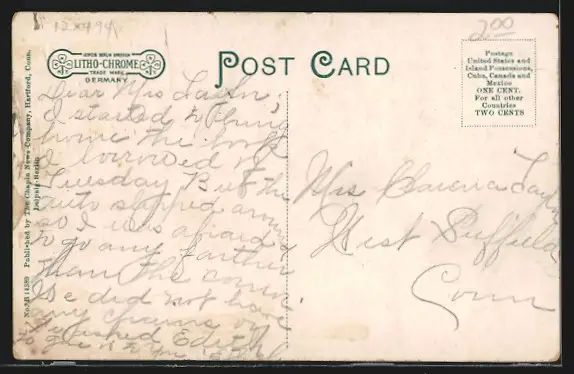 2.00
LEIPZIG BERLIN DRESDEN
LITHO-CHROME
TRADE MARK
GERMANY
POST CARD
Postage
United States and
Island Possessions,
Cuba, Canada and
Mexico
ONE CENT.
For all other
Countries
TWO CENTS
No. Published by The Chapin News Company, Hartford, Conn.
Leipzig-Berlin
Dear Mrs
I started to bring
home the book
I borrowed of
Tuesday But the
auto
so I was afraid
to go any farther
than the
We did not have
any chains on
I wished Edith
Mrs
West Suffield
Conn